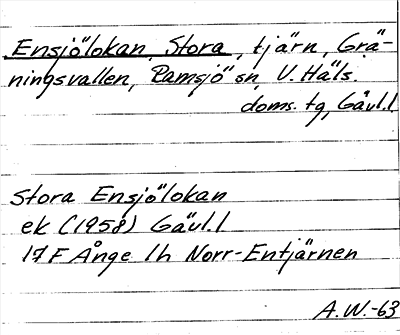 Ensjölokan, Stora, tjärn, Grä-
ningsvallen, Ramsjö sn, V. Häls.
doms. tg, Gävl.l
Stora Ensjölokan
ek (1958) Gävl.l
17F Ånge 1h Norr-Entjärnen
A.W.-63